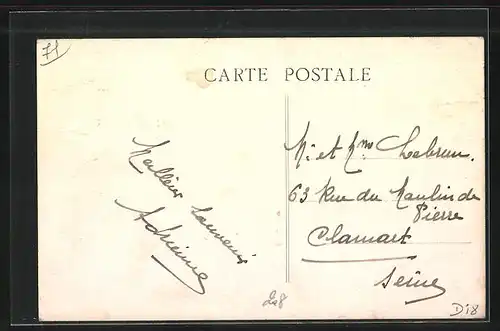 71
CARTE POSTALE
Meilleur souvenir
Adrienne
M. et Mme Lebrun.
63 Rue du Moulin de
Pierre
Clamart
Seine
208
Di8